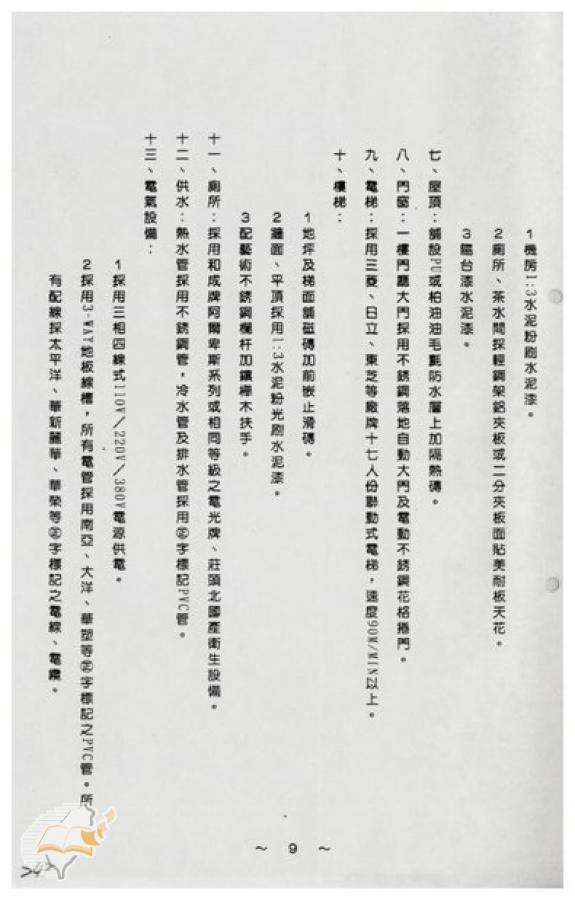 1機房1:3水泥粉刷水泥漆。
2廁所、茶水間採輕鋼架鋁夾板或二分夾板面貼美耐板天花。
3陽台漆水泥漆。
七、屋頂：舖設PU或柏油油毛氈防水層上加隔熱磚。
八、門窗：一樓門廳大門採用不銹鋼落地自動大門及電動不銹鋼花格捲門。
九、電梯：採用三菱、日立、東芝等廠牌十七人份聯動式電梯，速度90M/MIN以上。
十、樓梯：
1地坪及梯面舖磁磚加前嵌止滑磚。
2牆面、平頂採用1:3水泥粉光刷水泥漆。
3配藝術不銹鋼欄杆加鑲櫸木扶手。
十一、廁所：採用和成牌阿爾卑斯系列或相同等級之電光牌、莊頭北國產衛生設備。
十二、供水：熱水管採用不銹鋼管，冷水管及排水管採用㊣字標記PVC管。
十三、電氣設備：
1採用三相四線式110V/220V/380V電源供電。
2採用3-WAY地板線槽，所有電管採用南亞、大洋、華塑等㊣字標記之PVC管。所
有配線採太平洋、華新麗華、華榮等㊣字標記之電線、電纜。
～ 9 ～